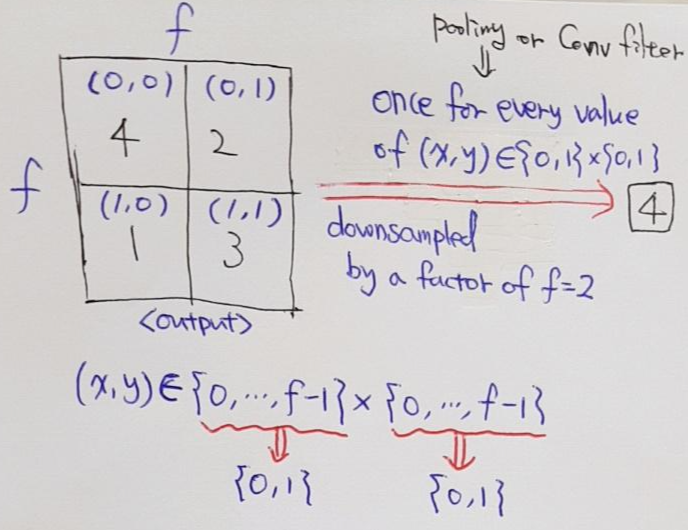 f
pooling or Conv filter
⇓
once for every value
of (x,y)∈{0,1}×{0,1}
f
(0,0) (0,1)
4 2
(1,0) (1,1)
1 3
4
downsampled
by a factor of f=2
<output>
(x,y)∈{0,...,f-1}×{0,...,f-1}
{0,1} {0,1}